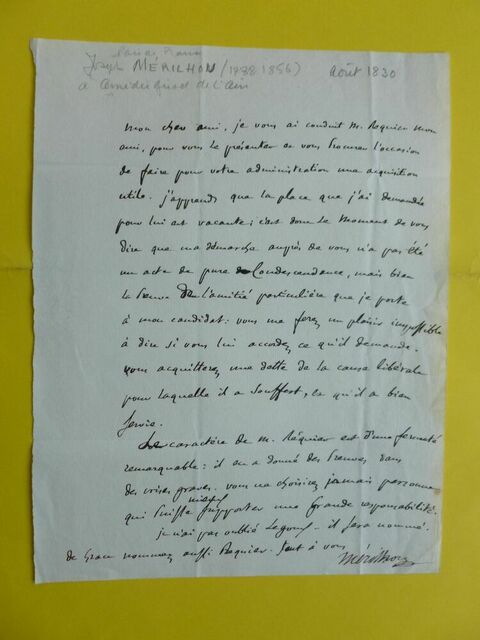 Joseph MÉRILHOU (1788 1856)
août 1830
à Amédée Girod de l'Ain
Mon cher ami, je vous ai conduit M. Réquier mon
ami, pour vous le présenter et vous procurer l'occasion
de faire pour votre administration une acquisition
utile. j'apprends que la place que j'ai demandée
pour lui est vacante; c'est donc le moment de vous
dire que ma démarche auprès de vous n'a pas été
un acte de pure condescendance, mais bien
la preuve de l'amitié particulière que je porte
à mon candidat: vous me ferez un plaisir impossible
à dire si vous lui accordez ce qu'il demande.
vous acquitterez une dette de la cause libérale
pour laquelle il a souffert, et qu'il a bien
servie.
Le caractère de M. Réquier est d'une fermeté
remarquable: il en a donné des preuves dans
des crises graves. vous ne choisirez jamais personne
qui puisse mieux supporter une grande responsabilité.
je n'ai pas oublié - il sera nommé.
de grace nommez aussi Requier. tout à vous
Mérilhou